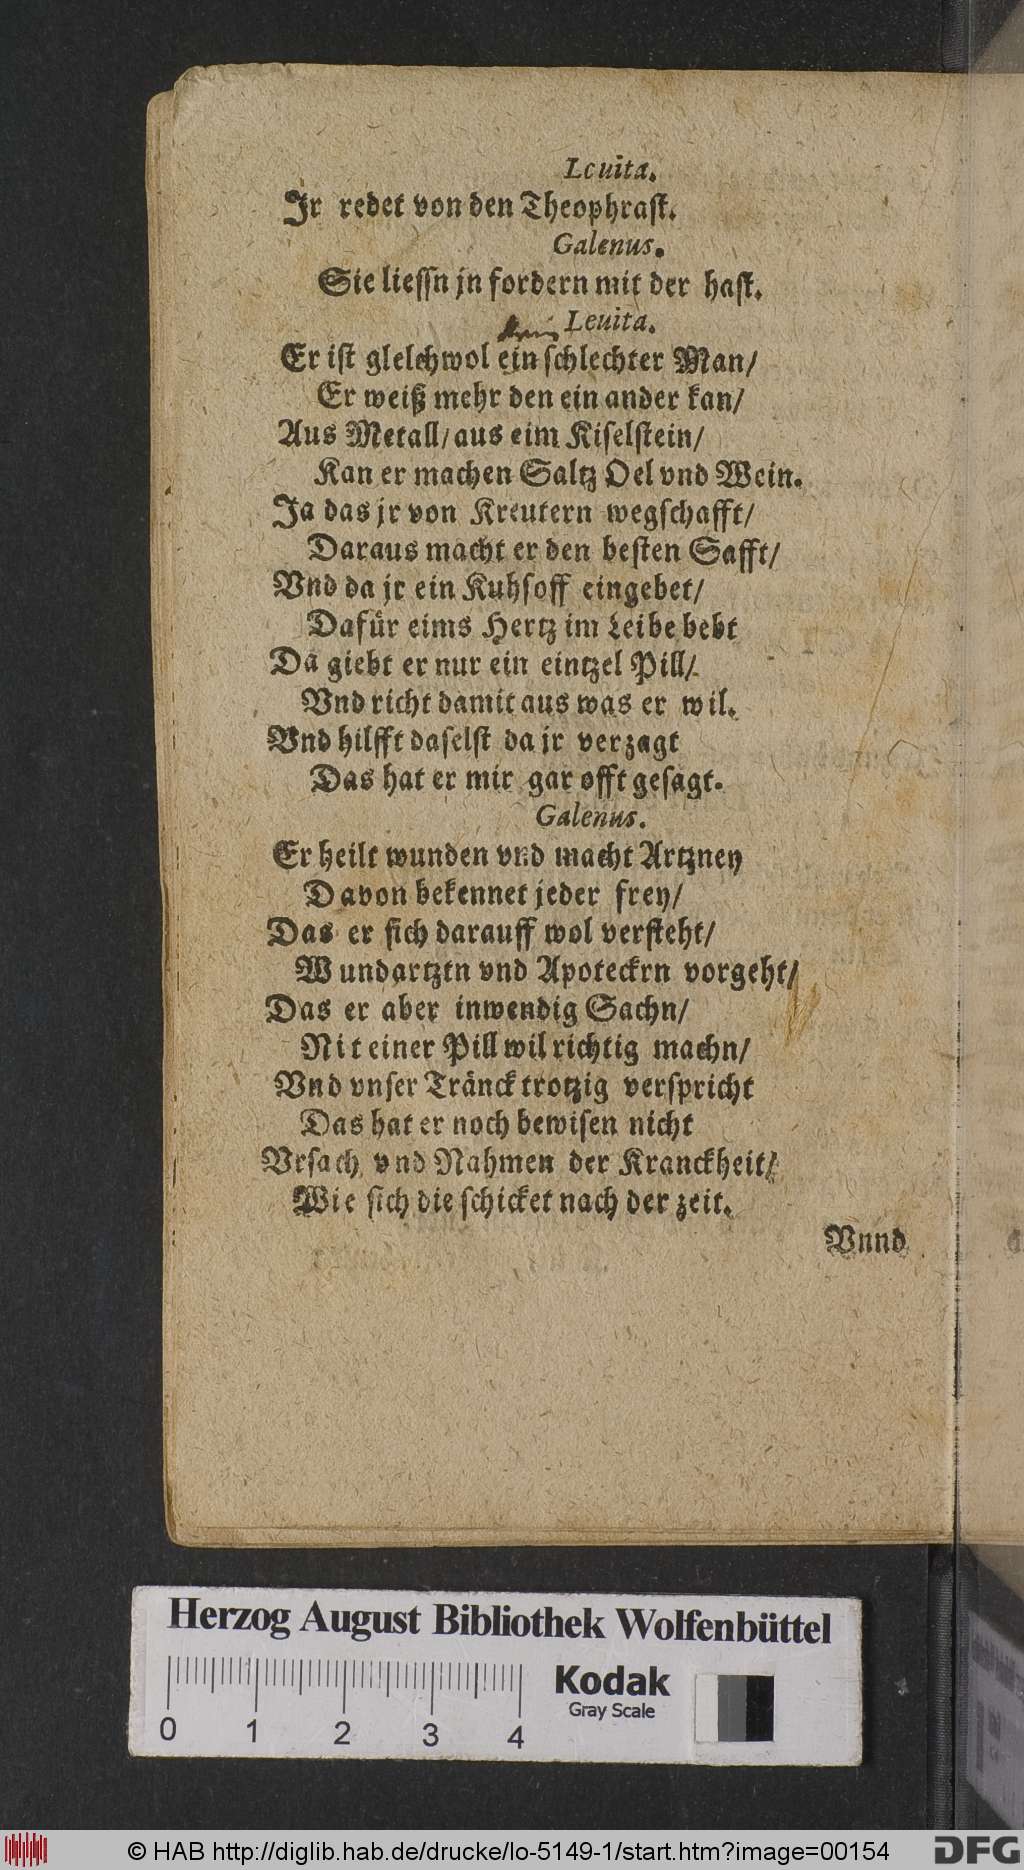 Leuita.
Jr redet von den Theophrast.
Galenus.
Sie liessn jn fordern mit der hast.
Leuita.
Er ist glelchwol ein schlechter Man/
Er weiß mehr den ein ander kan/
Aus Metall/ aus eim Kiselstein/
Kan er machen Saltz Oel vnd Wein.
Ja das jr von Kreutern wegschafft/
Daraus macht er den besten Safft/
Vnd da jr ein Kuhsoff eingebet/
Dafür eims Hertz im Leibe bebt
Da giebt er nur ein eintzel Pill/
Vnd richt damit aus was er wil.
Vnd hilfft daselst da jr verzagt
Das hat er mir gar offt gesagt.
Galenus.
Er heilt wunden vnd macht Artzney
Davon bekennet jeder frey/
Das er sich darauff wol versteht/
Wundartztn vnd Apoteckrn vorgeht/
Das er aber inwendig Sachn/
Nit einer Pill wil richtig machn/
Vnd vnser Tränck trotzig verspricht
Das hat er noch bewisen nicht
Vrsach vnd Nahmen der Kranckheit/
Wie sich die schicket nach der zeit.
Vnnd
Herzog August Bibliothek Wolfenbüttel
Kodak
Gray Scale
0 1 2 3 4
© HAB http://diglib.hab.de/drucke/lo-5149-1/start.htm?image=00154
DFG